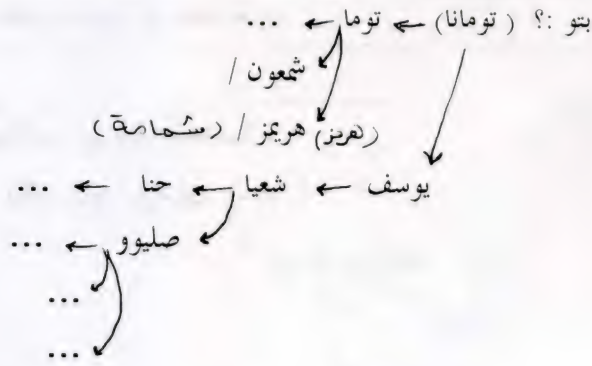 بتو :؟ ( تومانا) ← توما ← ...
شمعون /
(هرمز) هريمز / (شمامة)
يوسف ← شعيا ← حنا ← ...
صليوو ← ...
...
...